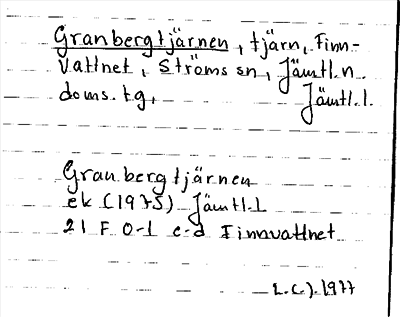 Granbergtjärnen, tjärn, Finn-
vattnet, Ströms sn, Jämtl. n.
doms. tg, Jämtl. l.
Granbergtjärnen
ek (1975) Jämtl. l
21 F 0-1 c-d Finnvattnet
L.C.J. 1977